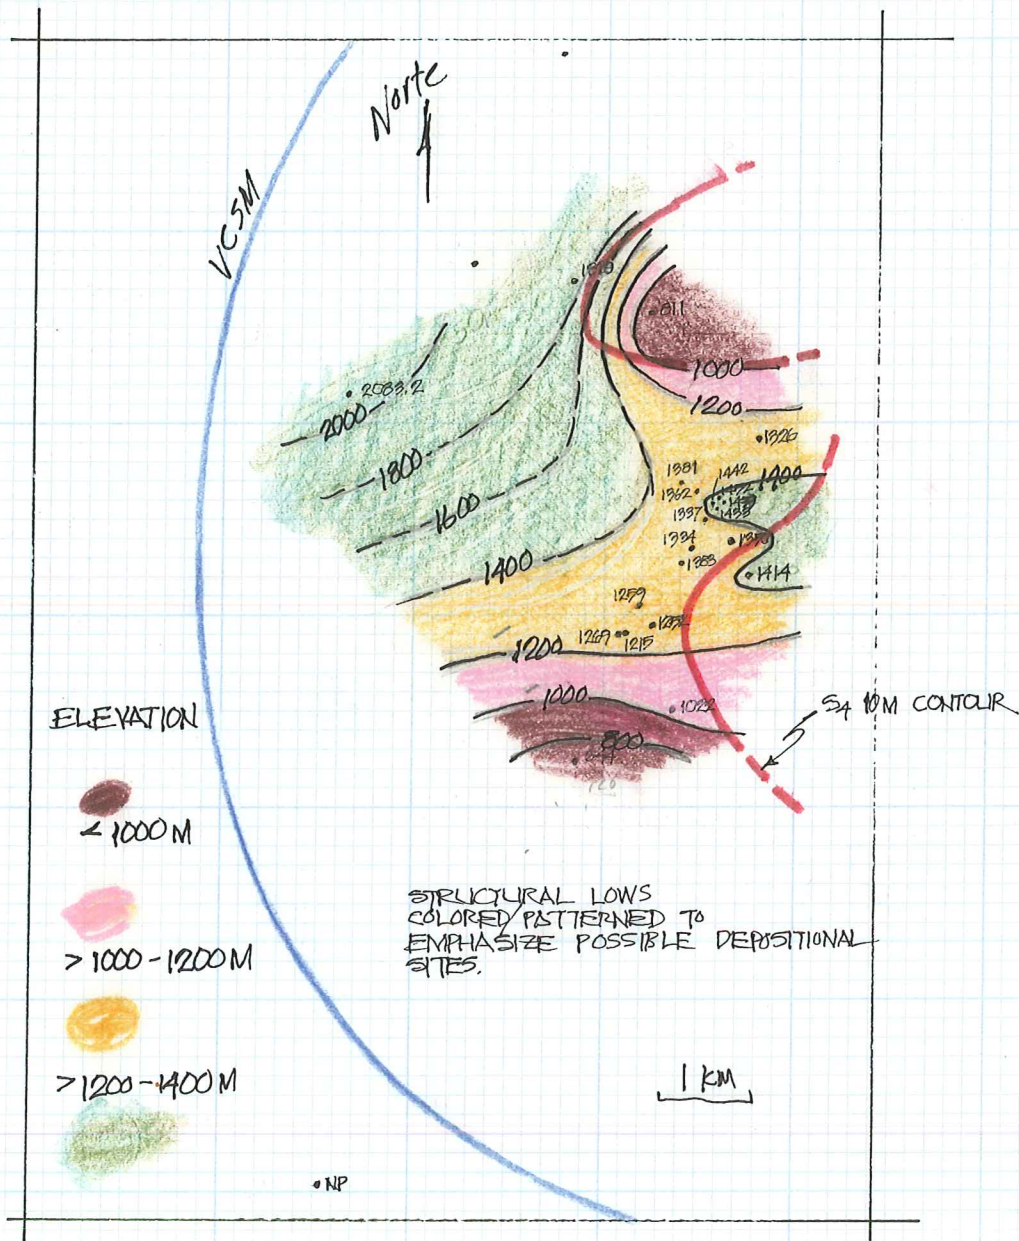 Norte
VCSM
811
1000
1200
2083.2
2000
1326
1800
1381
1442
1400
1362
1600
1337
1433
1334
1383
1400
1414
1259
1252
1269
1215
1200
1000
1022
800
ELEVATION
S4 10M CONTOUR
< 1000M
> 1000-1200M
> 1200-1400M
STRUCTURAL LOWS
COLORED/PATTERNED TO
EMPHASIZE POSSIBLE DEPOSITIONAL
SITES.
1 KM
NP